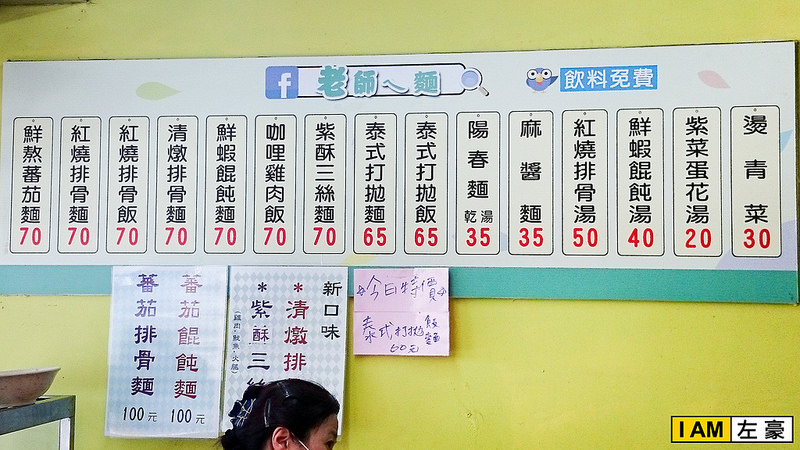 f 老師ㄟ麵
飲料免費
鮮熬蕃茄麵 70
紅燒排骨麵 70
紅燒排骨飯 70
清燉排骨麵 70
鮮蝦餛飩麵 70
咖哩雞肉飯 70
紫酥三絲麵 70
泰式打拋麵 65
泰式打拋飯 65
陽春麵 乾湯 35
麻醬麵 35
紅燒排骨湯 50
鮮蝦餛飩湯 40
紫菜蛋花湯 20
燙青菜 30
蕃茄排骨麵 100元
蕃茄餛飩麵 100元
新口味
*清燉排
*紫酥三絲
(雞肉、魷魚、火腿)
今日特價
泰式打拋飯麵
60元
I AM 左豪